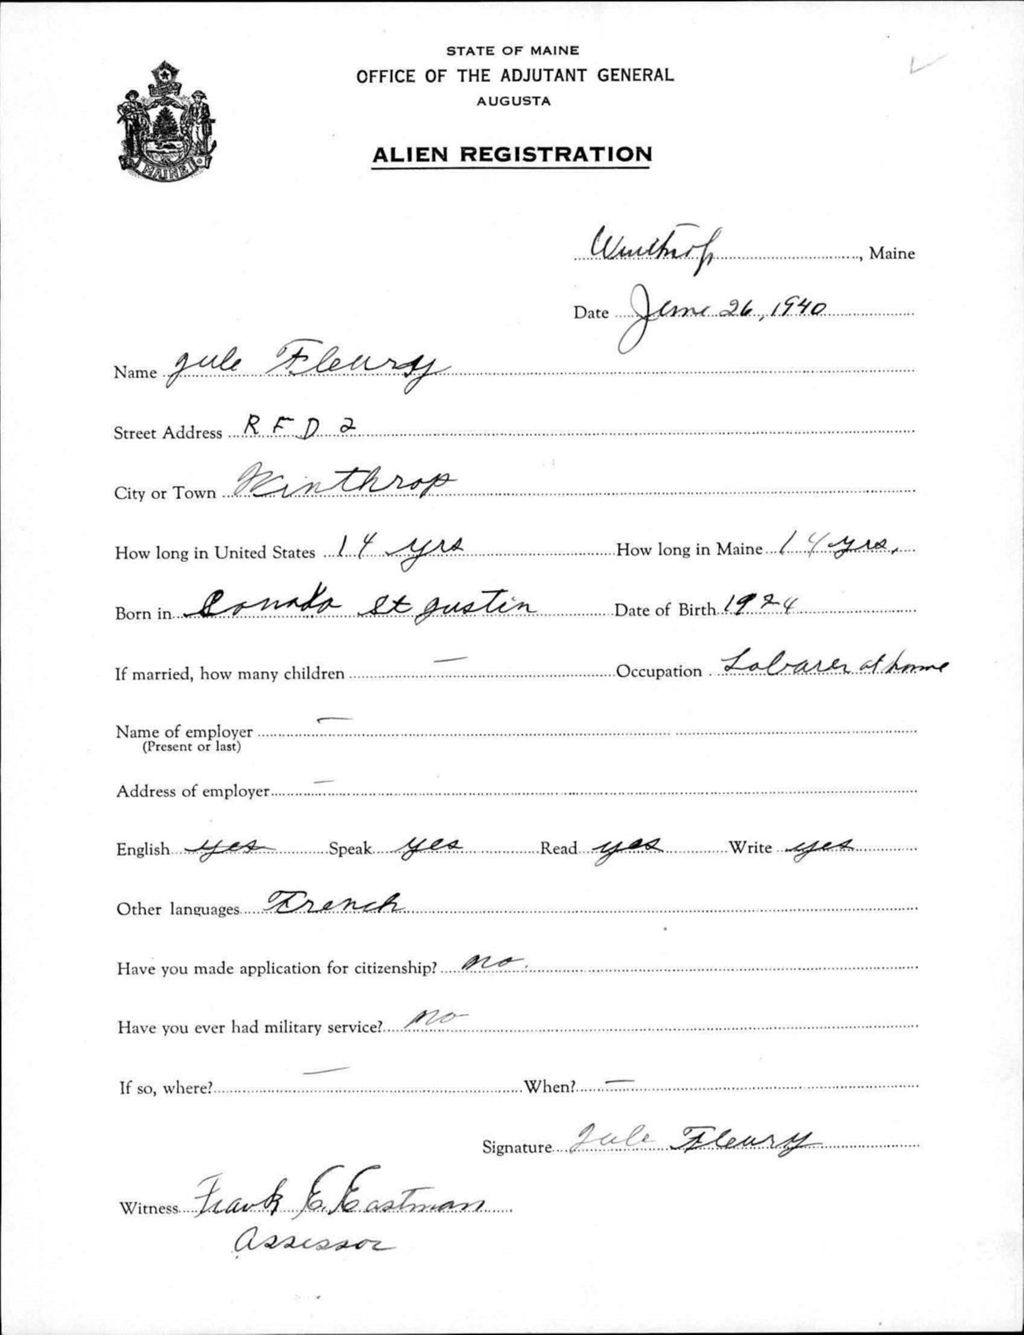 STATE OF MAINE
OFFICE OF THE ADJUTANT GENERAL
AUGUSTA
ALIEN REGISTRATION
MAINE
Winthrop, Maine
Date June 26, 1940
Name Jule Fleury
Street Address R F D 2
City or Town Winthrop
How long in United States 14 yrs How long in Maine 14 yrs.
Born in Canada St Justin Date of Birth 1924
If married, how many children — Occupation Labarer at home
Name of employer —
(Present or last)
Address of employer —
English yes Speak yes Read yes Write yes
Other languages French
Have you made application for citizenship? no.
Have you ever had military service? no
If so, where? — When? —
Signature Jule Fleury
Witness Frank E. Eastman
Assessor